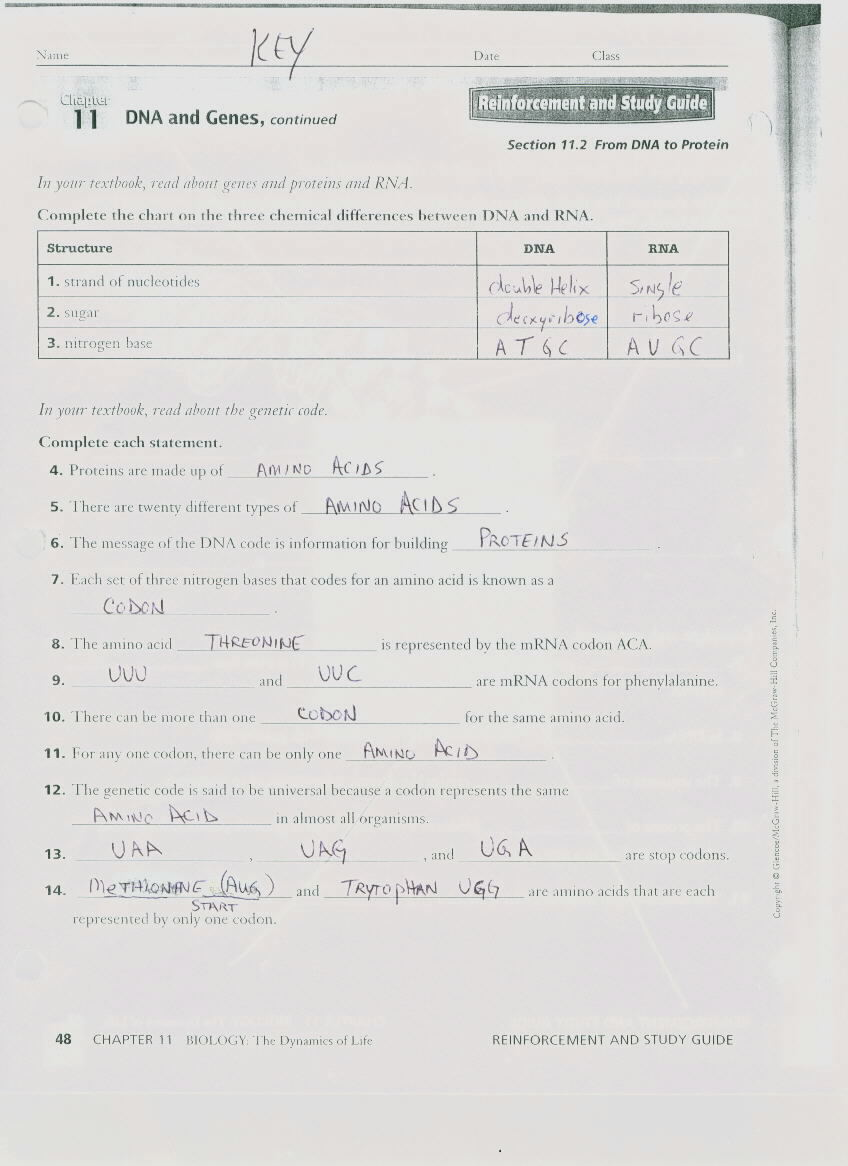 Name KEY Date Class
Chapter
11 DNA and Genes, continued
Reinforcement and Study Guide
Section 11.2 From DNA to Protein
In your textbook, read about genes and proteins and RNA.
Complete the chart on the three chemical differences between DNA and RNA.
Structure DNA RNA
1. strand of nucleotides double Helix SiNgle
2. sugar deoxyribose ribose
3. nitrogen base A T G C A U G C
In your textbook, read about the genetic code.
Complete each statement.
4. Proteins are made up of AMINO ACIDS .
5. There are twenty different types of AMINO ACIDS .
6. The message of the DNA code is information for building PROTEINS .
7. Each set of three nitrogen bases that codes for an amino acid is known as a
CODON .
8. The amino acid THREONINE is represented by the mRNA codon ACA.
9. UUU and UUC are mRNA codons for phenylalanine.
10. There can be more than one CODON for the same amino acid.
11. For any one codon, there can be only one AMINO ACID .
12. The genetic code is said to be universal because a codon represents the same
AMINO ACID in almost all organisms.
13. UAA , UAG , and UGA are stop codons.
14. MeTHIONINE (AUG) and TRYTOPHAN UGG are amino acids that are each
START
represented by only one codon.
Copyright © Glencoe/McGraw-Hill, a division of The McGraw-Hill Companies, Inc.
48 CHAPTER 11 BIOLOGY: The Dynamics of Life REINFORCEMENT AND STUDY GUIDE